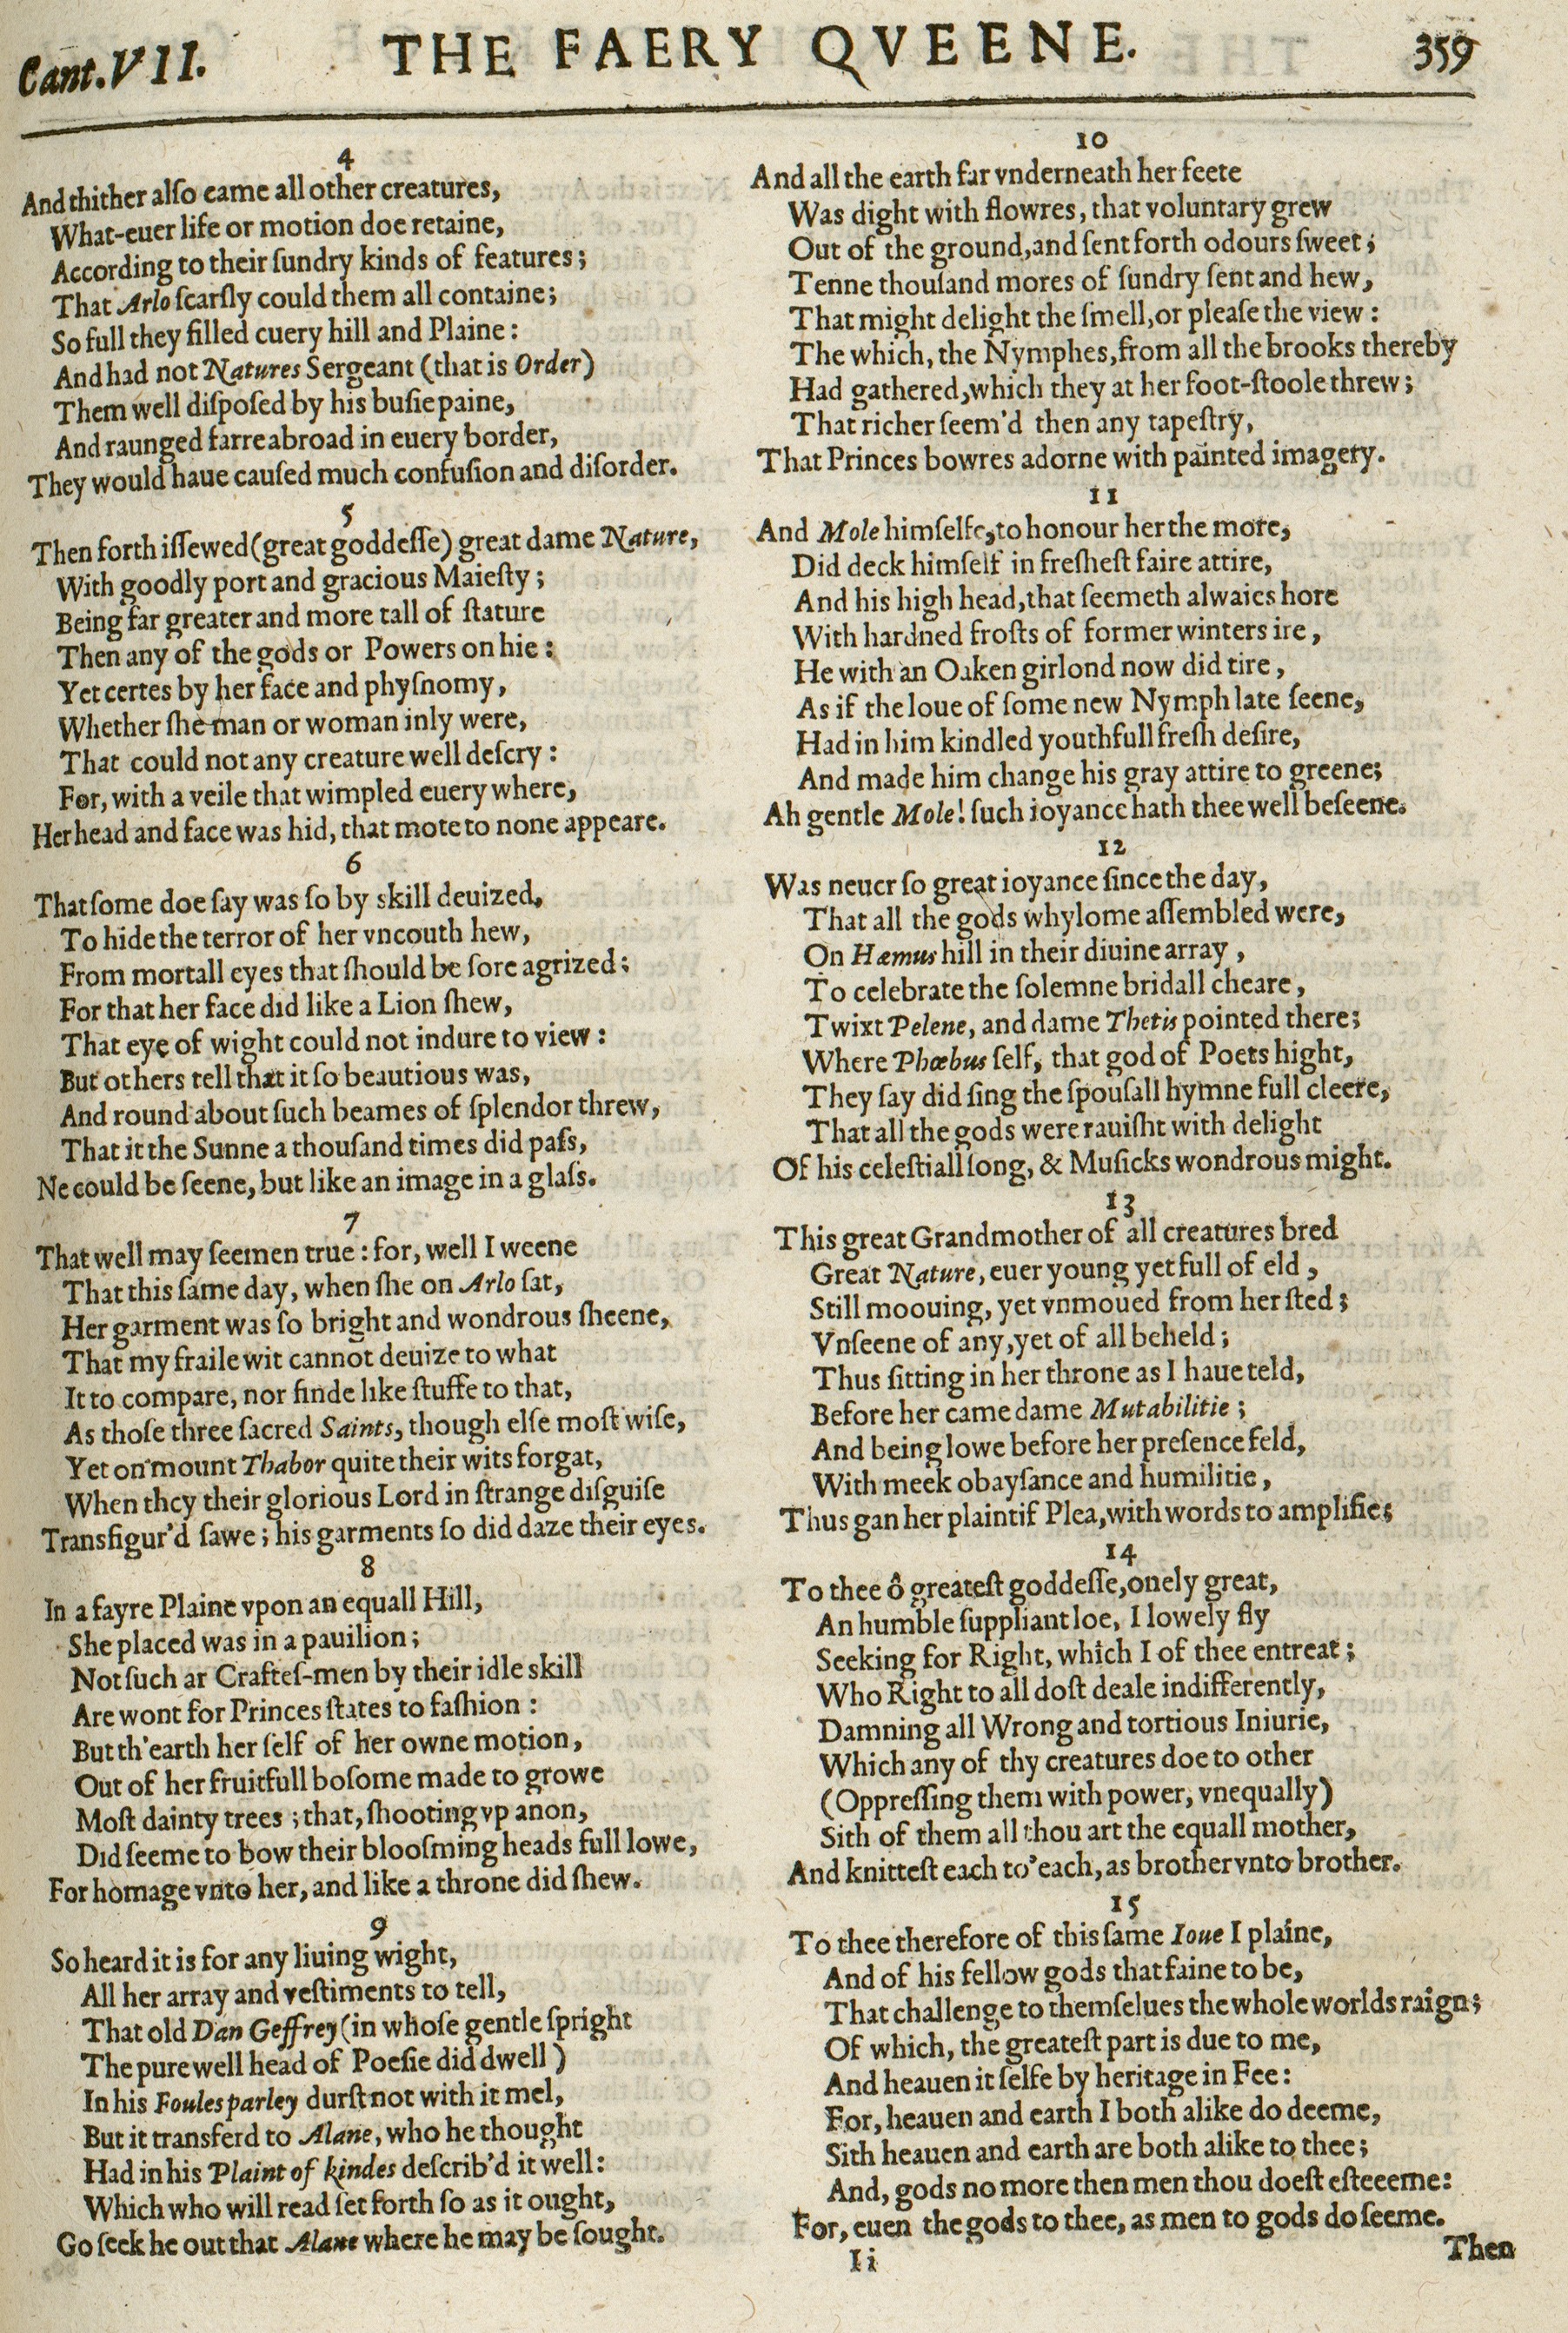 Cant. VII.
THE FAERY QVEENE.
359
4
And thither alſo came all other creatures,
What-euer life or motion doe retaine,
According to their ſundry kinds of features;
That Arlo ſcarſly could them all containe;
So full they filled euery hill and Plaine:
And had not Natures Sergeant (that is Order)
Them well diſpoſed by his buſie paine,
And raunged farre abroad in euery border,
They would haue cauſed much confuſion and diſorder.
5
Then forth iſſewed (great goddeſſe) great dame Nature,
With goodly port and gracious Maieſty;
Being far greater and more tall of ſtature
Then any of the gods or Powers on hie:
Yet certes by her face and phyſnomy,
Whether ſhe man or woman inly were,
That could not any creature well deſcry:
For, with a veile that wimpled euery where,
Her head and face was hid, that mote to none appeare.
6
That ſome doe ſay was ſo by skill deuized,
To hide the terror of her vncouth hew,
From mortall eyes that ſhould be ſore agrized;
For that her face did like a Lion ſhew,
That eye of wight could not indure to view:
But others tell that it ſo beautious was,
And round about ſuch beames of ſplendor threw,
That it the Sunne a thouſand times did paſs,
Ne could be ſeene, but like an image in a glaſs.
7
That well may ſeemen true: for, well I weene
That this ſame day, when ſhe on Arlo ſat,
Her garment was ſo bright and wondrous ſheene,
That my fraile wit cannot deuize to what
It to compare, nor finde like ſtuffe to that,
As thoſe three ſacred Saints, though elſe moſt wiſe,
Yet on mount Thabor quite their wits forgat,
When they their glorious Lord in ſtrange diſguiſe
Transfigur'd ſawe; his garments ſo did daze their eyes.
8
In a fayre Plaine vpon an equall Hill,
She placed was in a pauilion;
Not ſuch ar Crafteſ-men by their idle skill
Are wont for Princes ſtates to faſhion:
But th'earth her ſelf of her owne motion,
Out of her fruitfull boſome made to growe
Moſt dainty trees; that, ſhooting vp anon,
Did ſeeme to bow their blooſming heads full lowe,
For homage vnto her, and like a throne did ſhew.
9
So heard it is for any liuing wight,
All her array and veſtiments to tell,
That old Dan Geffrey (in whoſe gentle ſpright
The pure well head of Poeſie did dwell)
In his Foules parley durſt not with it mel,
But it transferd to Alane, who he thought
Had in his Plaint of kindes deſcrib'd it well:
Which who will read ſet forth ſo as it ought,
Go ſeek he out that Alane where he may be ſought.
10
And all the earth far vnderneath her feete
Was dight with flowres, that voluntary grew
Out of the ground, and ſent forth odours ſweet;
Tenne thouſand mores of ſundry ſent and hew,
That might delight the ſmell, or pleaſe the view:
The which, the Nymphes, from all the brooks thereby
Had gathered, which they at her foot-ſtoole threw;
That richer ſeem'd then any tapeſtry,
That Princes bowres adorne with painted imagery.
11
And Mole himſelfe, to honour her the more,
Did deck himſelf in freſheſt faire attire,
And his high head, that ſeemeth alwaies hore
With hardned froſts of former winters ire,
He with an Oaken girlond now did tire,
As if the loue of ſome new Nymph late ſeene,
Had in him kindled youthfull freſh deſire,
And made him change his gray attire to greene;
Ah gentle Mole! ſuch ioyance hath thee well beſeene.
12
Was neuer ſo great ioyance ſince the day,
That all the gods whylome aſſembled were,
On Hæmus hill in their diuine array,
To celebrate the ſolemne bridall cheare,
Twixt Pelene, and dame Thetis pointed there;
Where Phœbus ſelf, that god of Poets hight,
They ſay did ſing the ſpouſall hymne full cleere,
That all the gods were rauiſht with delight
Of his celeſtiall ſong, & Muſicks wondrous might.
13
This great Grandmother of all creatures bred
Great Nature, euer young yet full of eld,
Still moouing, yet vnmoued from her ſted;
Vnſeene of any, yet of all beheld;
Thus ſitting in her throne as I haue teld,
Before her came dame Mutabilitie;
And being lowe before her preſence feld,
With meek obayſance and humilitie,
Thus gan her plaintif Plea, with words to amplifie;
14
To thee ô greateſt goddeſſe, onely great,
An humble ſuppliant loe, I lowely fly
Seeking for Right, which I of thee entreat;
Who Right to all doſt deale indifferently,
Damning all Wrong and tortious Iniurie,
Which any of thy creatures doe to other
(Oppreſſing them with power, vnequally)
Sith of them all thou art the equall mother,
And knitteſt each to'each, as brother vnto brother.
15
To thee therefore of this ſame Ioue I plaine,
And of his fellow gods that faine to be,
That challenge to themſelues the whole worlds raign;
Of which, the greateſt part is due to me,
And heauen it ſelfe by heritage in Fee:
For, heauen and earth I both alike do deeme,
Sith heauen and earth are both alike to thee;
And, gods no more then men thou doeſt eſteeeme:
For, euen the gods to thee, as men to gods do ſeeme.
Ii
Then